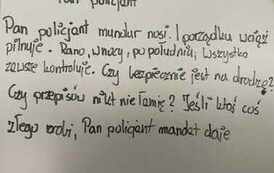 Pan policjant
Pan policjant mundur nosi. I porządku wciąż
pilnuje. Rano, w nocy, po południu, wszystko
zawsze kontroluje. Czy bezpiecznie jest na drodze?
Czy przepisów nikt nie łamie? Jeśli ktoś coś
złego zrobi, Pan policjant mandat daje